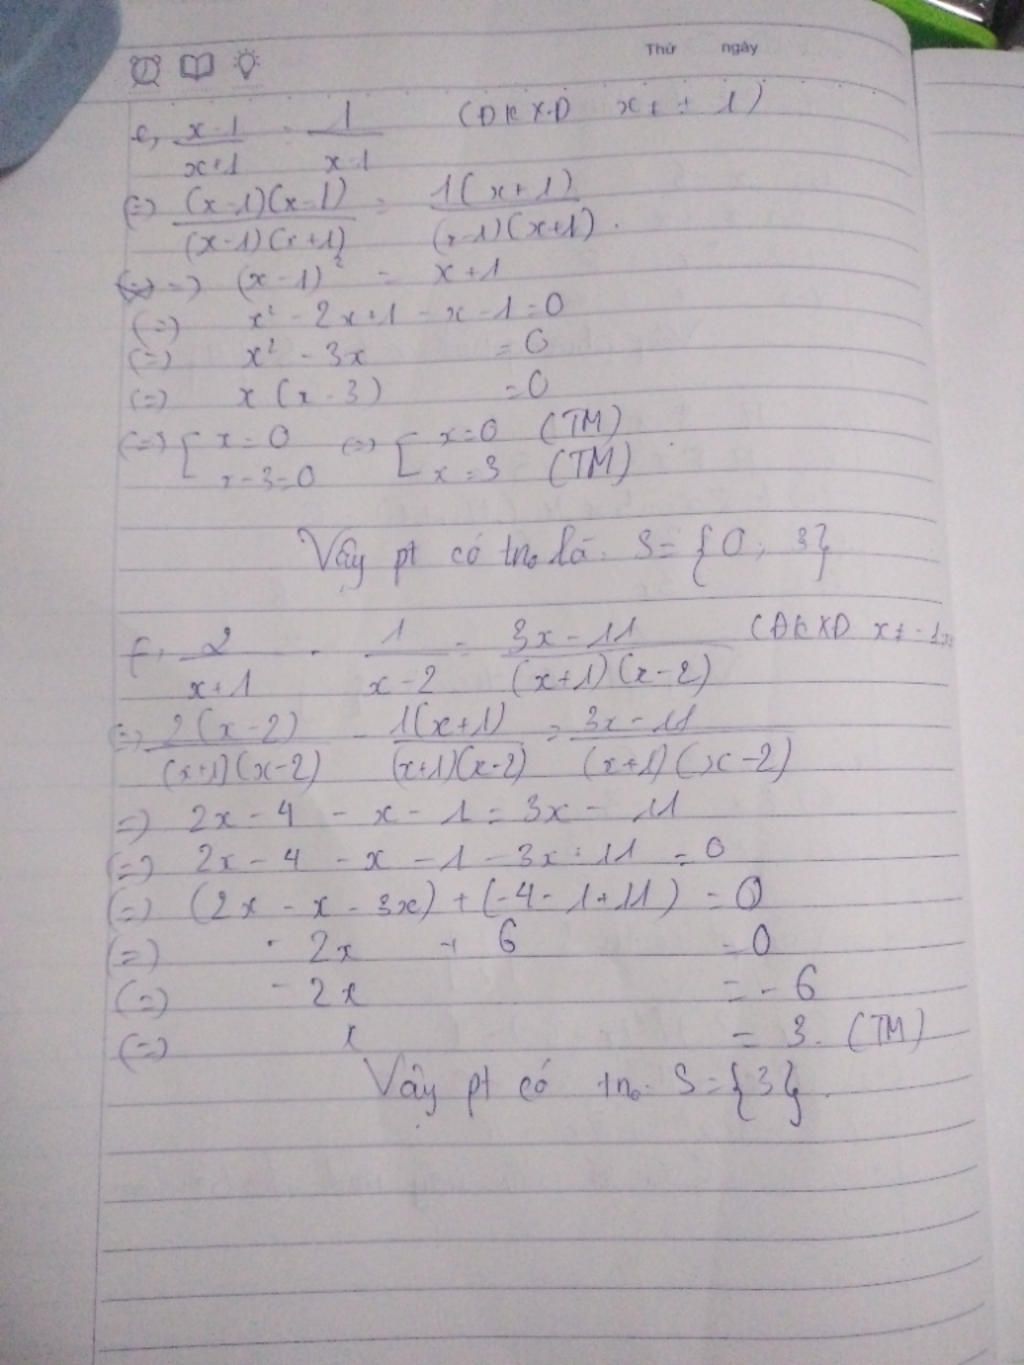 Thứ ngày
e, x-1/x+1 = 1/x-1 (ĐKXD x ≠ ± 1)
(=) (x-1)(x-1)/(x-1)(x+1) = 1(x+1)/(x-1)(x+1).
=) (x-1)² = x+1
(=) x² - 2x+1 - x - 1 = 0
(=) x² - 3x = 0
(=) x (x - 3) = 0
(=) [ x = 0 (=) [ x = 0 (TM)
x - 3 = 0 x = 3 (TM)
Vậy pt có tno là. S = {0; 3}
f, 2/x+1 - 1/x-2 = 3x-11/(x+1)(x-2) (ĐKXD x ≠ -1
(=) 2(x-2)/(x+1)(x-2) - 1(x+1)/(x+1)(x-2) = 3x-11/(x+1)(x-2)
=) 2x - 4 - x - 1 = 3x - 11
(=) 2x - 4 - x - 1 - 3x + 11 = 0
(=) (2x - x - 3x) + (-4 - 1 + 11) = 0
(=) - 2x + 6 = 0
(=) - 2x = - 6
(=) x = 3. (TM)
Vậy pt có tno. S = {3}.